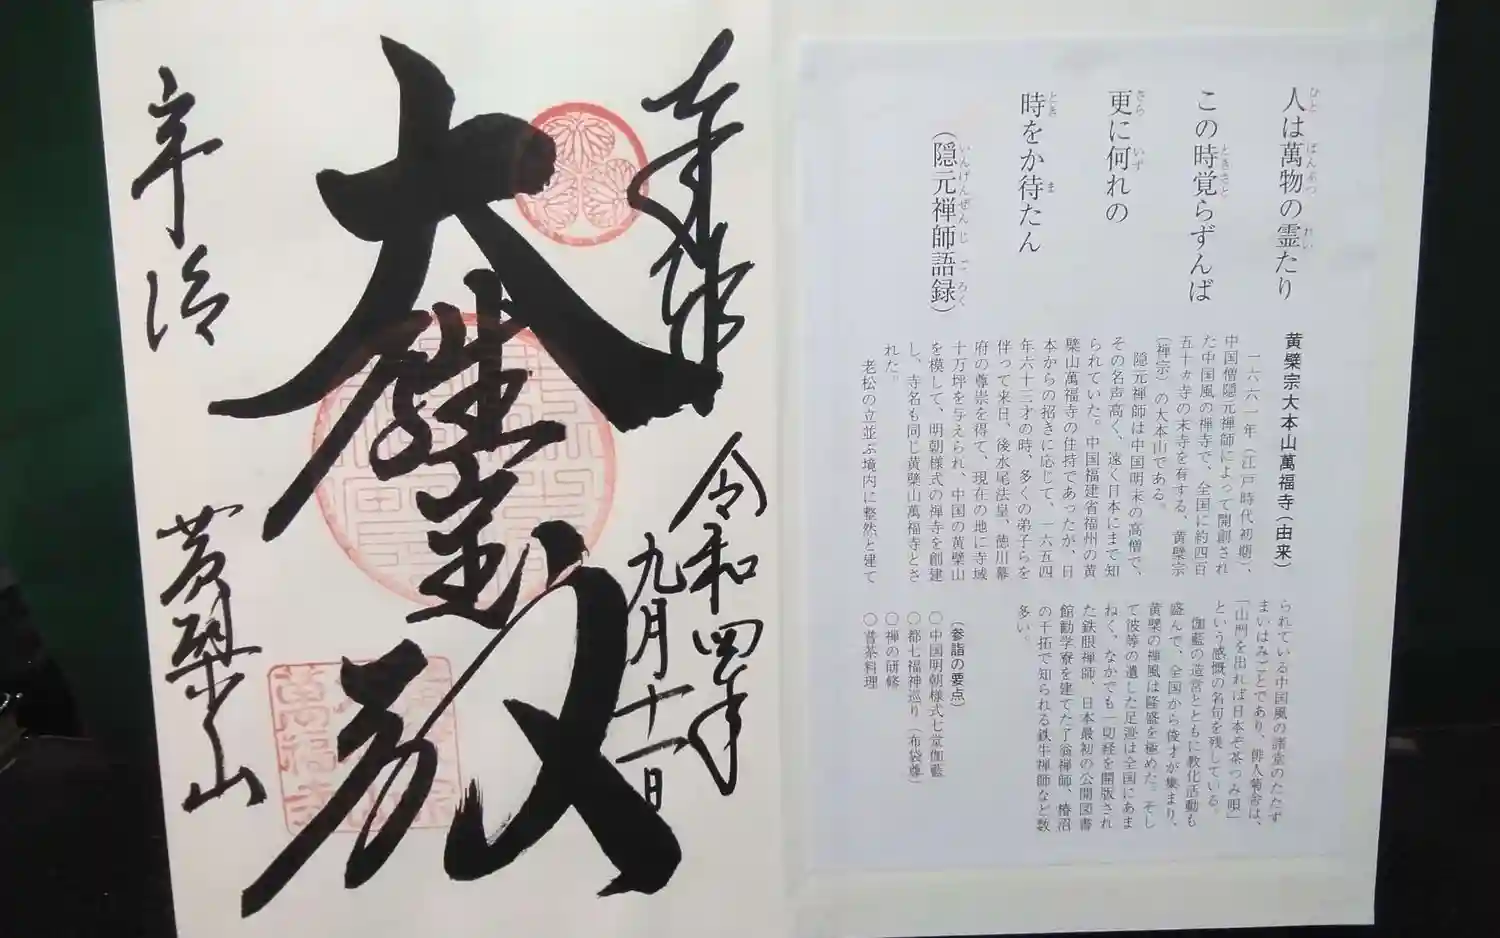 人は萬物の霊たり
この時覚らずんば
更に何れの
時をか待たん
（隠元禅師語録）
黄檗宗大本山萬福寺（由来）
一六六一年（江戸時代初期）、
中国僧隠元禅師によって開創され
た中国風の禅寺で、全国に約四百
五十ヵ寺の末寺を有する、黄檗宗
（禅宗）の大本山である。
隠元禅師は中国明末の高僧で、
その名声高く、遠く日本にまで知
られていた。中国福建省福州の黄
檗山萬福寺の住持であったが、日
本からの招きに応じて、一六五四
年六十三才の時、多くの弟子らを
伴って来日、後水尾法皇、徳川幕
府の尊崇を得て、現在の地に寺域
十万坪を与えられ、中国の黄檗山
を模して、明朝様式の禅寺を創建
し、寺名も同じ黄檗山萬福寺とさ
れた。
老松の立並ぶ境内に整然と建て
られている中国風の諸堂のたたず
まいはみごとであり、俳人菊舎は、
「山門を出れば日本ぞ茶つみ唄」
という感慨の名句を残している。
伽藍の造営とともに教化活動も
盛んで、全国から俊才が集まり、
黄檗の禅風は隆盛を極めた。そし
て彼等の遺した足迹は全国にあま
ねく、なかでも一切経を開版され
た鉄眼禅師、日本最初の公開図書
館勧学寮を建てた了翁禅師、椿沼
の干拓で知られる鉄牛禅師など数
多い。
（参詣の要点）
〇中国明朝様式七堂伽藍
〇都七福神巡り（布袋尊）
〇禅の研修
〇普茶料理
奉拝
令和四年
九月十一日
大雄宝殿
宇治
黄檗山